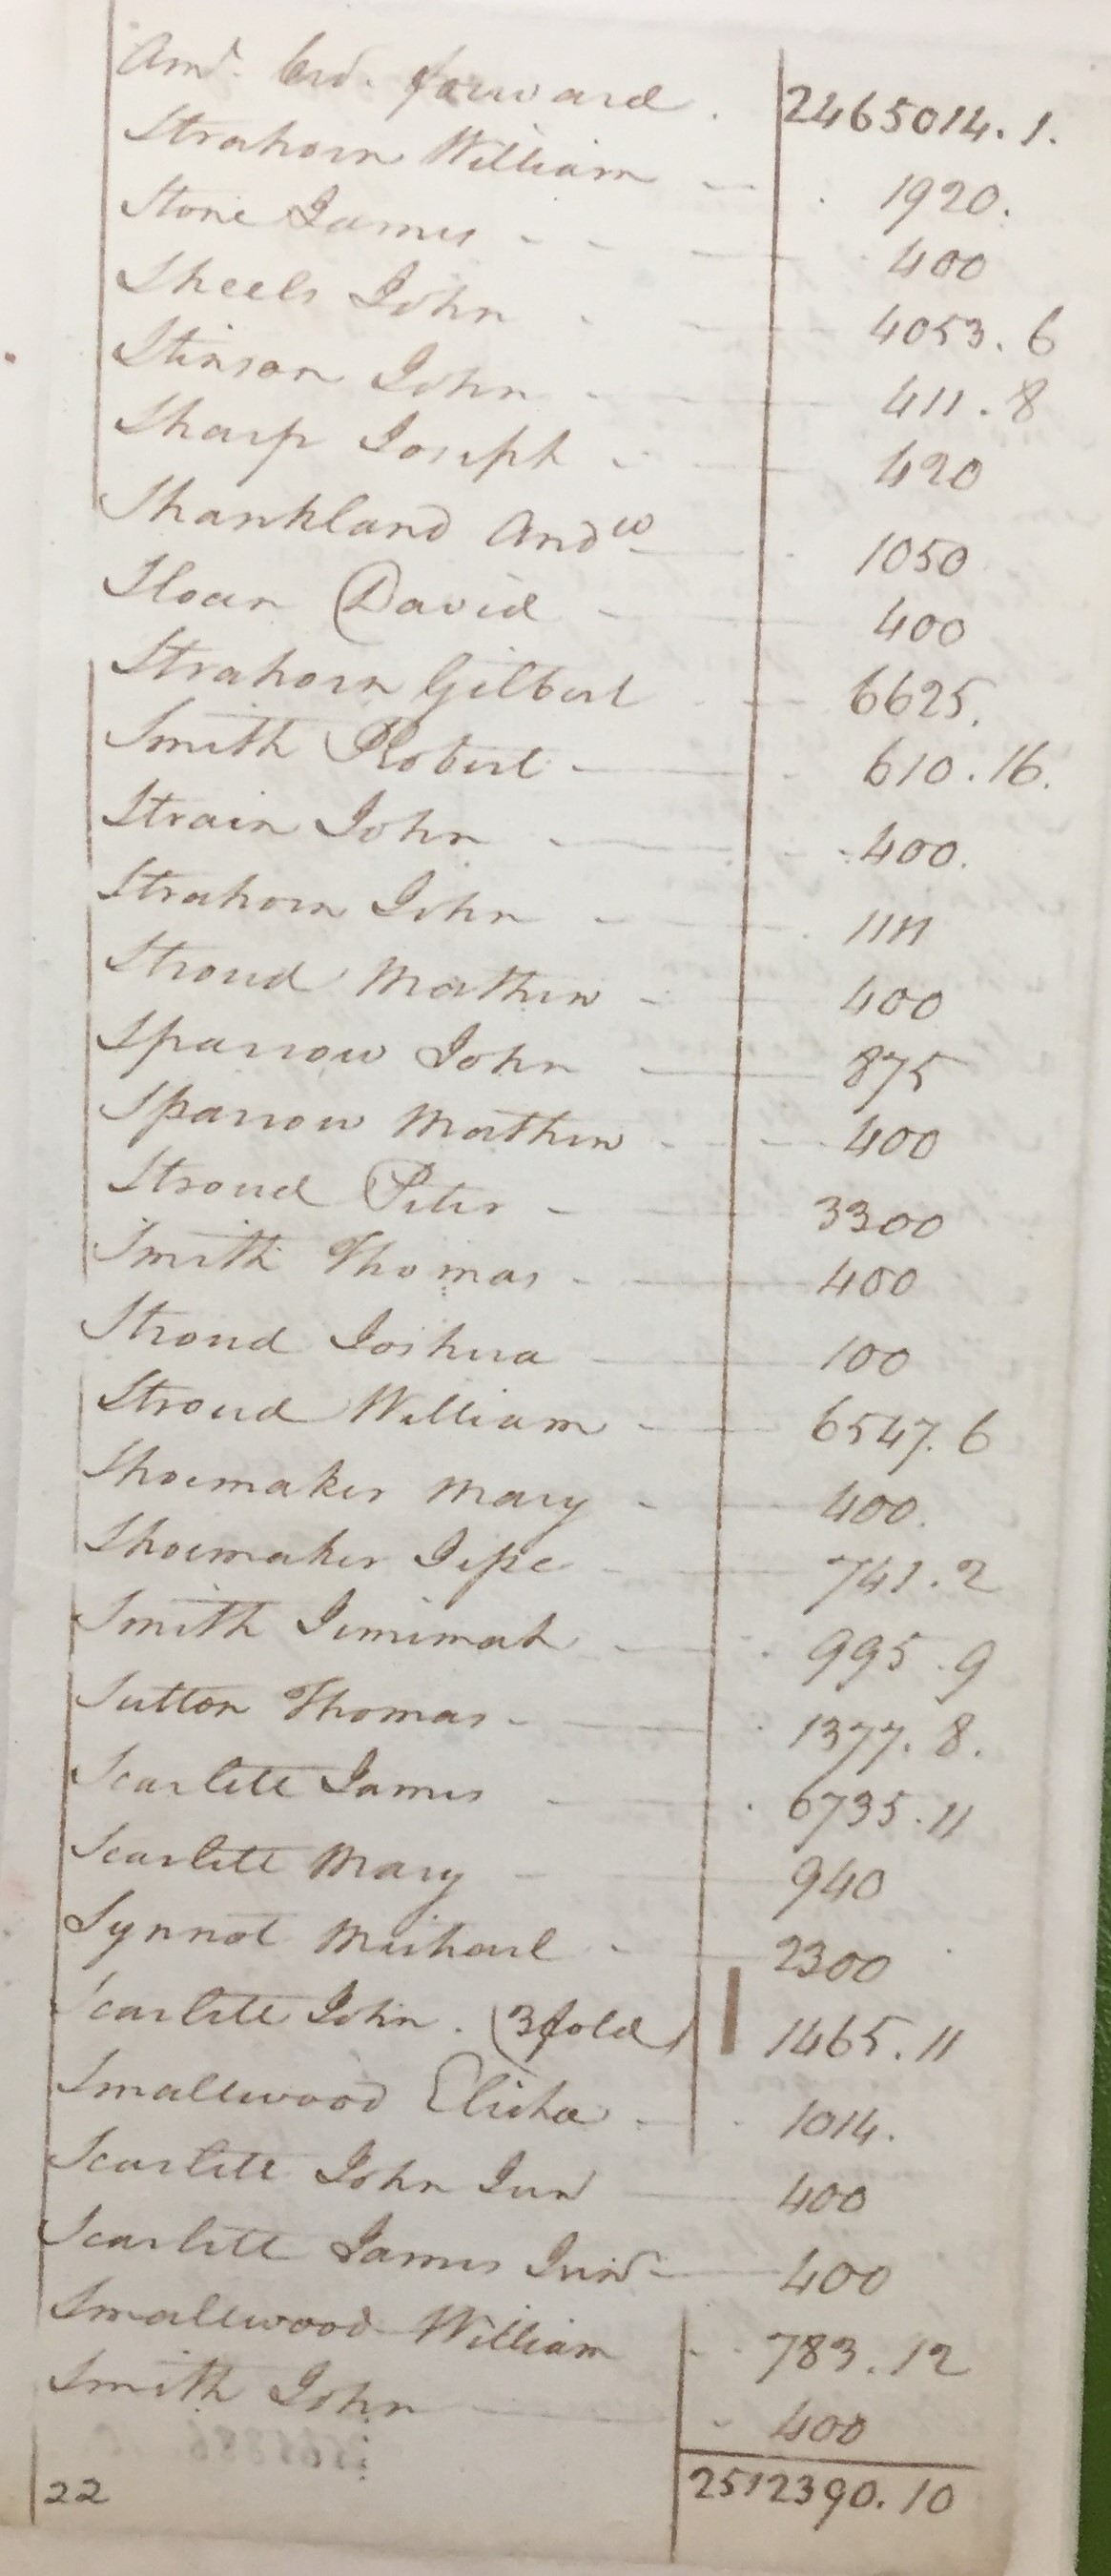 Amt. brd. forward. 2465014. 1.
Strahorn William 1920.
Stone James 400
Sheels John 4053. 6
Stinson John 411. 8
Sharp Joseph 420
Shankland Andw 1050
Sloan David 400
Strahorn Gilbert 6625.
Smith Robert 610. 16.
Strain John 400.
Strahorn John 1111
Stroud Mathew 400
Sparrow John 875
Sparrow Mathew 400
Stroud Peter 3300
Smith Thomas 400
Stroud Joshua 100
Stroud William 6547. 6
Shoemaker Mary 400.
Shoemaker Jesse 741. 2
Smith Jemimah 995. 9
Sutton Thomas 1377. 8.
Scarlett James 6735. 11
Scarlett Mary 940
Synnot Michael 2300
Scarlett John. (3fold) 1465. 11
Smallwood Elisha 1014.
Scarlett John Jun 400
Scarlett James Junr 400
Smallwood William 783. 12
Smith John 400
22 2512390. 10